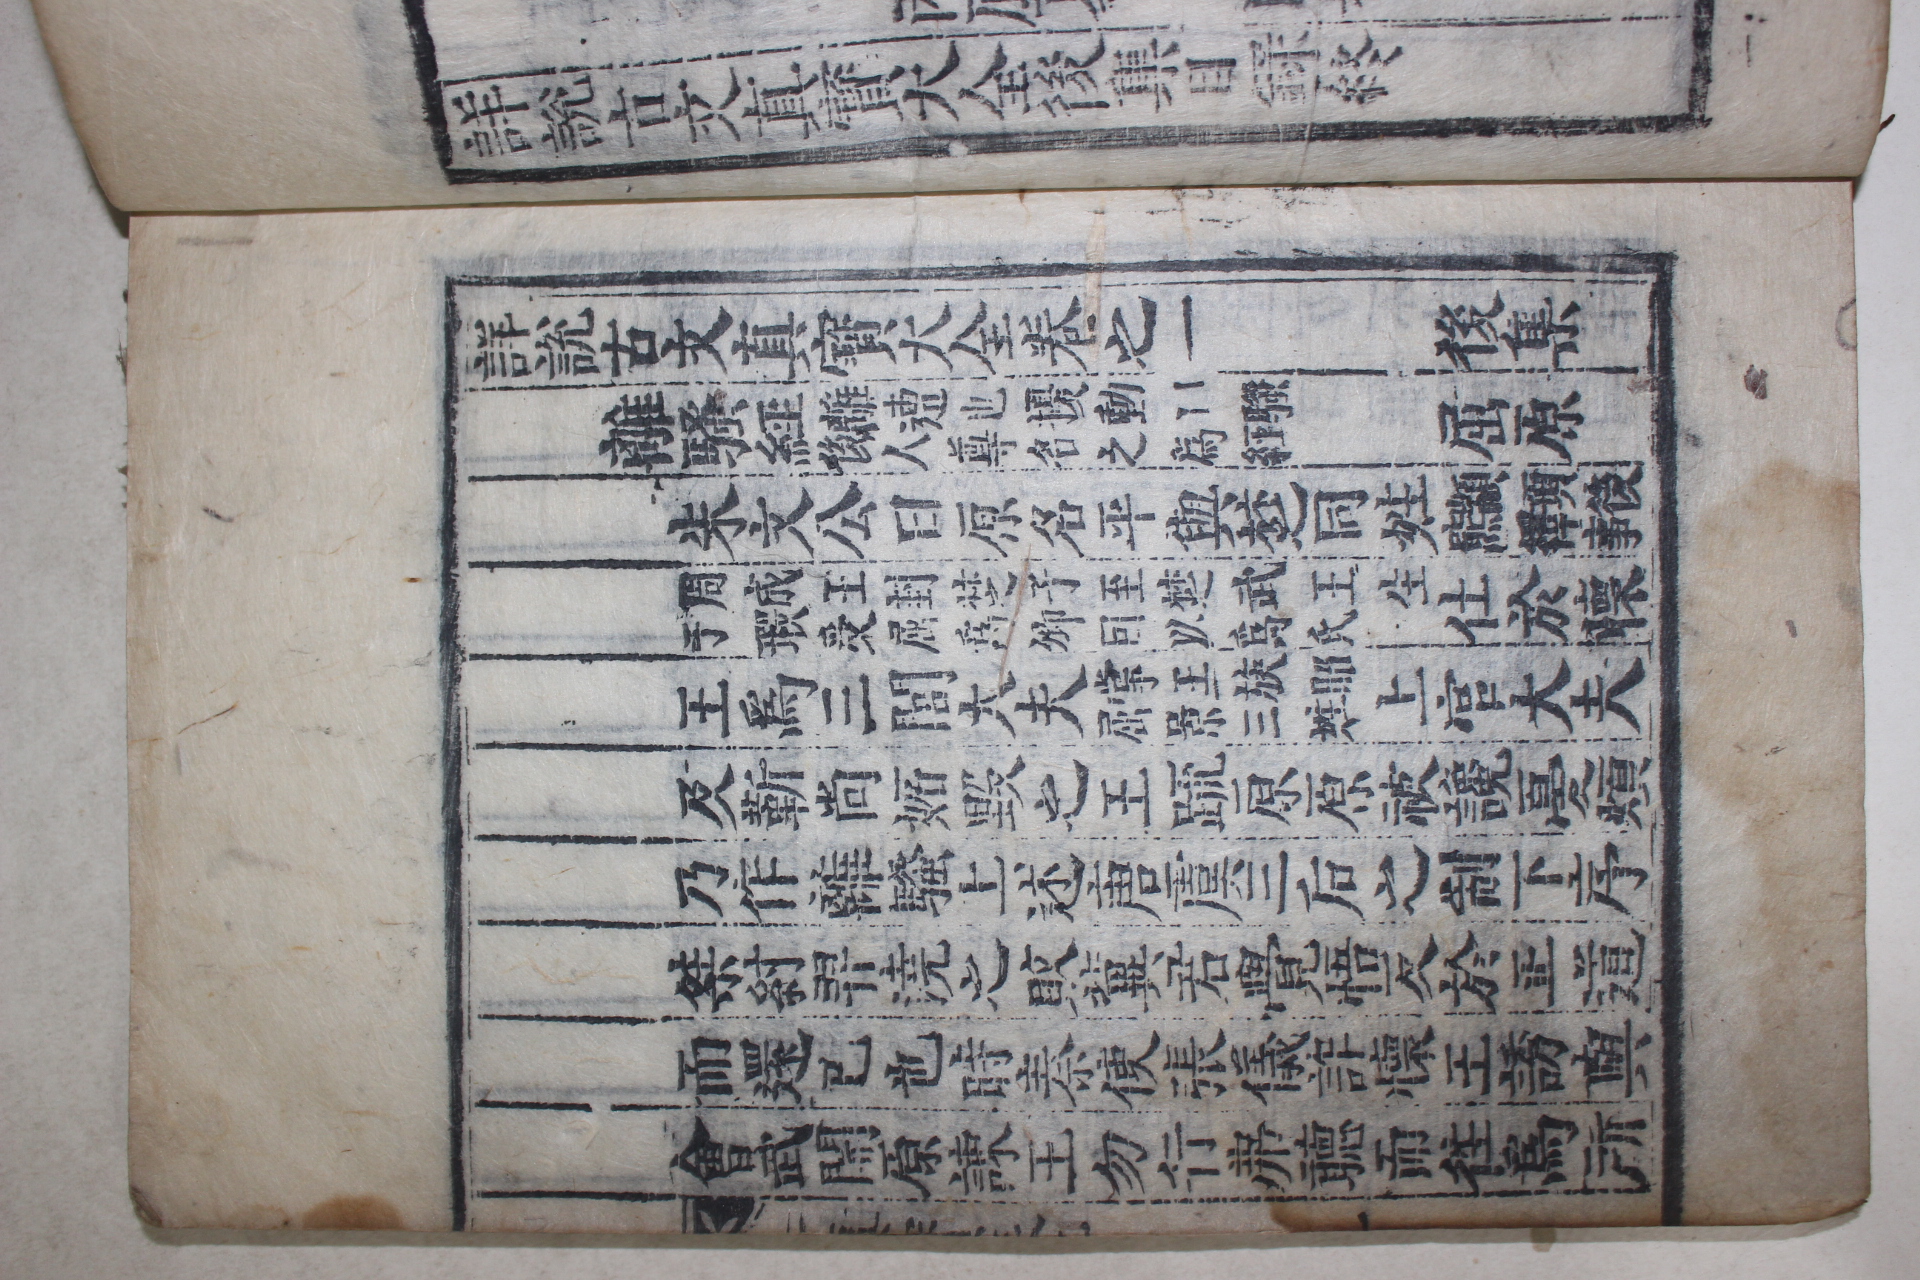 詳說古文真寶大全後集目錄終
詳說古文真寶大全卷之一 後集
離騷經 離遭也擾動曰騷後人尊名之為經 屈原
朱文公曰原名平與楚同姓 顓頊後熊繹事
周成王封楚子至楚武王生子瑕受屈為卿因以為氏 仕於懷
王為三閭大夫 掌王族昭屈景三姓 上官大夫
及靳尚妬毀之王疏原原被讒憂煩
乃作離騷上述唐虞三后之制下序
桀紂羿澆之敗冀君覺悟反於正道
而還己也時秦使張儀詐懷王誘與
會武關原諫王勿行弗聽而往為所